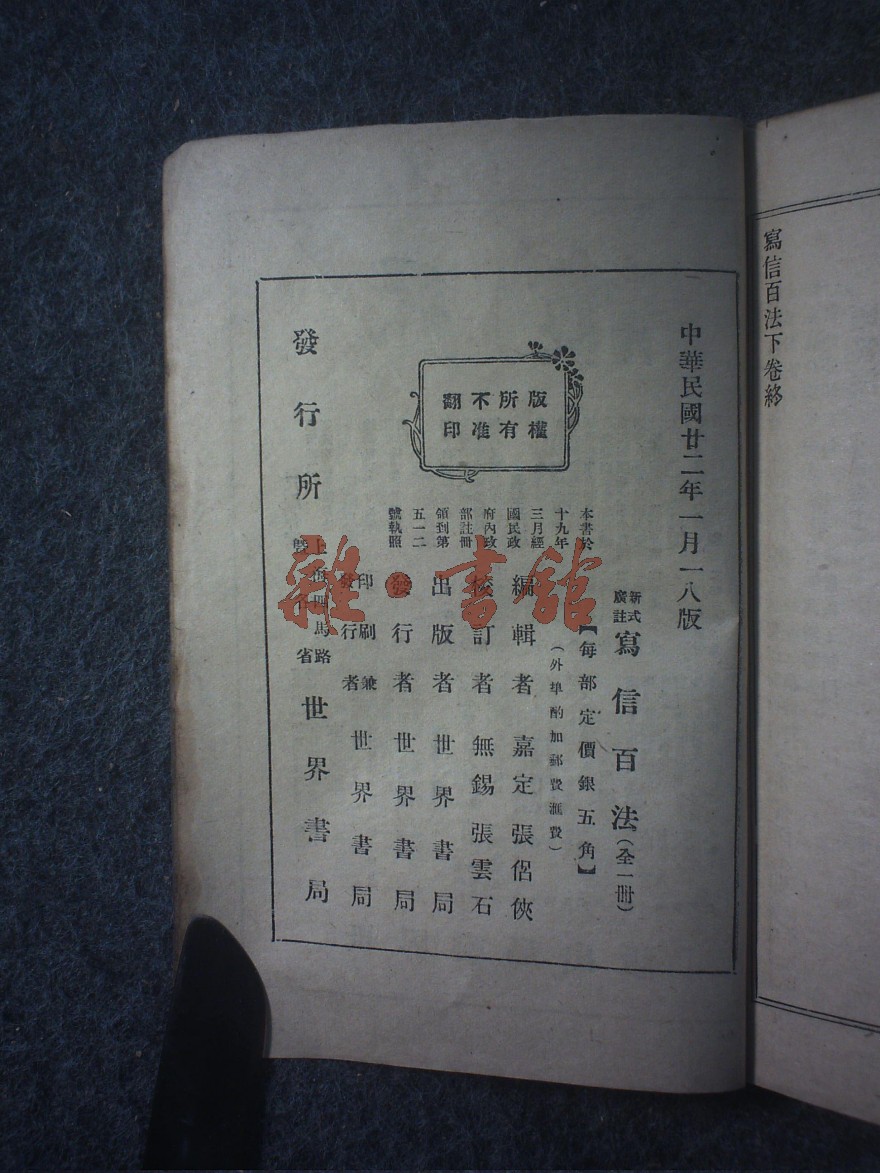 寫信百法下卷終
中華民國廿二年一月一八版
新式
廣註
寫信百法(全一冊)
【每部定價銀五角】
(外埠酌加郵費滙費)
版權
所有
不准
翻印
本書於
十九年
三月經
國民政
府內政
部註冊
領到第
五一二
號執照
編輯者 嘉定張侶俠
校訂者 無錫張雲石
出版者 世界書局
發行者 世界書局
印刷兼
發行者
世界書局
發行所
上海四馬路
暨各省
世界書局
雜·書館